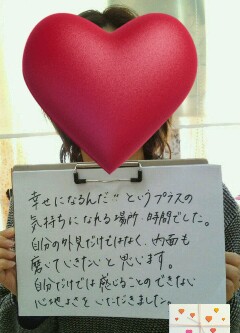 幸せになるんだ!! というプラスの
気持ちになれる場所・時間でした。
自分の外見だけではなく、内面も
磨いていきたいと思います。
自分だけでは感じることのできない
心地よさをいただきました。